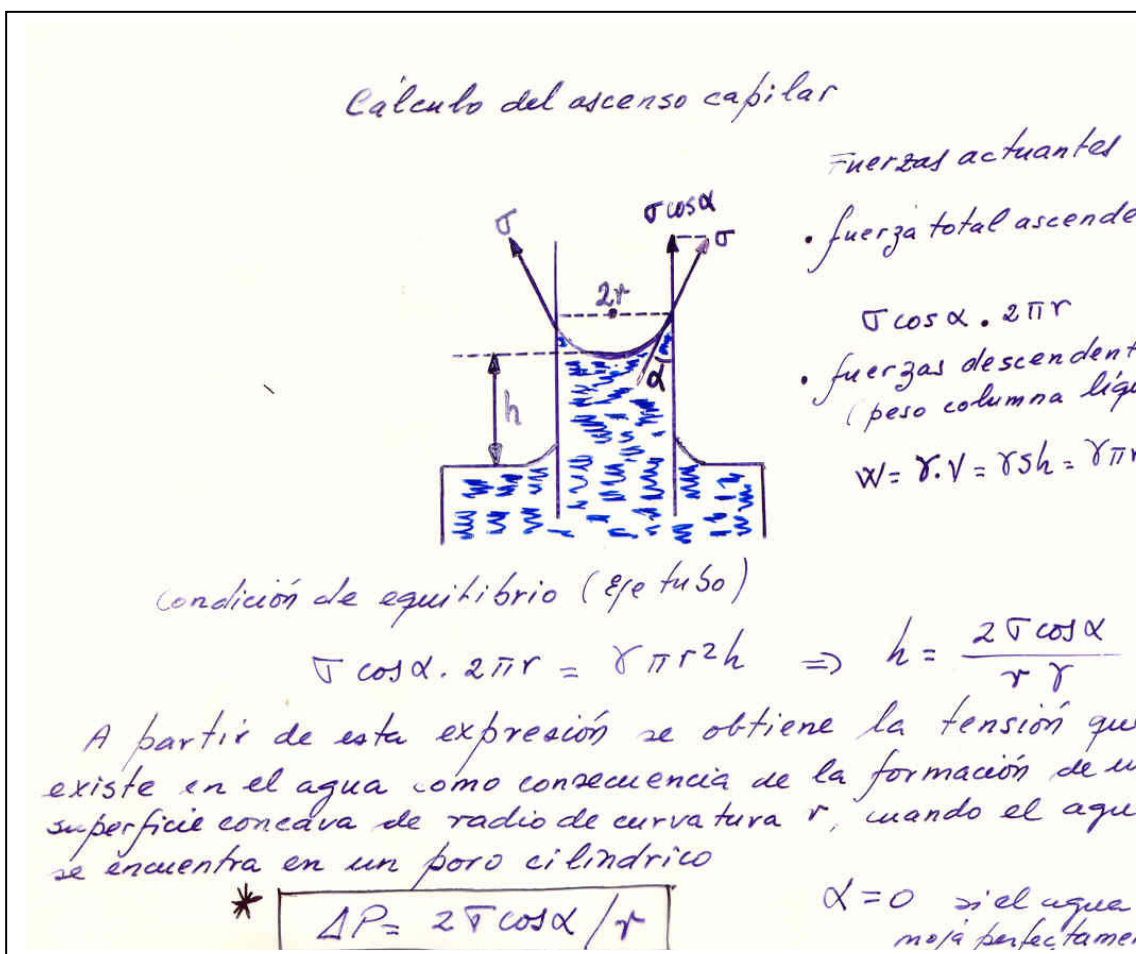 Cálculo del ascenso capilar
Fuerzas actuantes
σ
σ cos α
σ
• fuerza total ascende
2r
σ cos α . 2πr
• fuerzas descendent
α
(peso columna líqu
h
W = γ.V = γSh = γπr
Condición de equilibrio (Eje tubo)
σ cos α . 2πr = γπr²h ⇒ h = 2σ cos α / r γ
A partir de esta expresión se obtiene la tensión que
existe en el agua como consecuencia de la formación de u
superficie concava de radio de curvatura r, cuando el agu
se encuentra en un poro cilíndrico
* ΔP = 2σ cos α / r
α = 0 si el agua
moja perfectamen